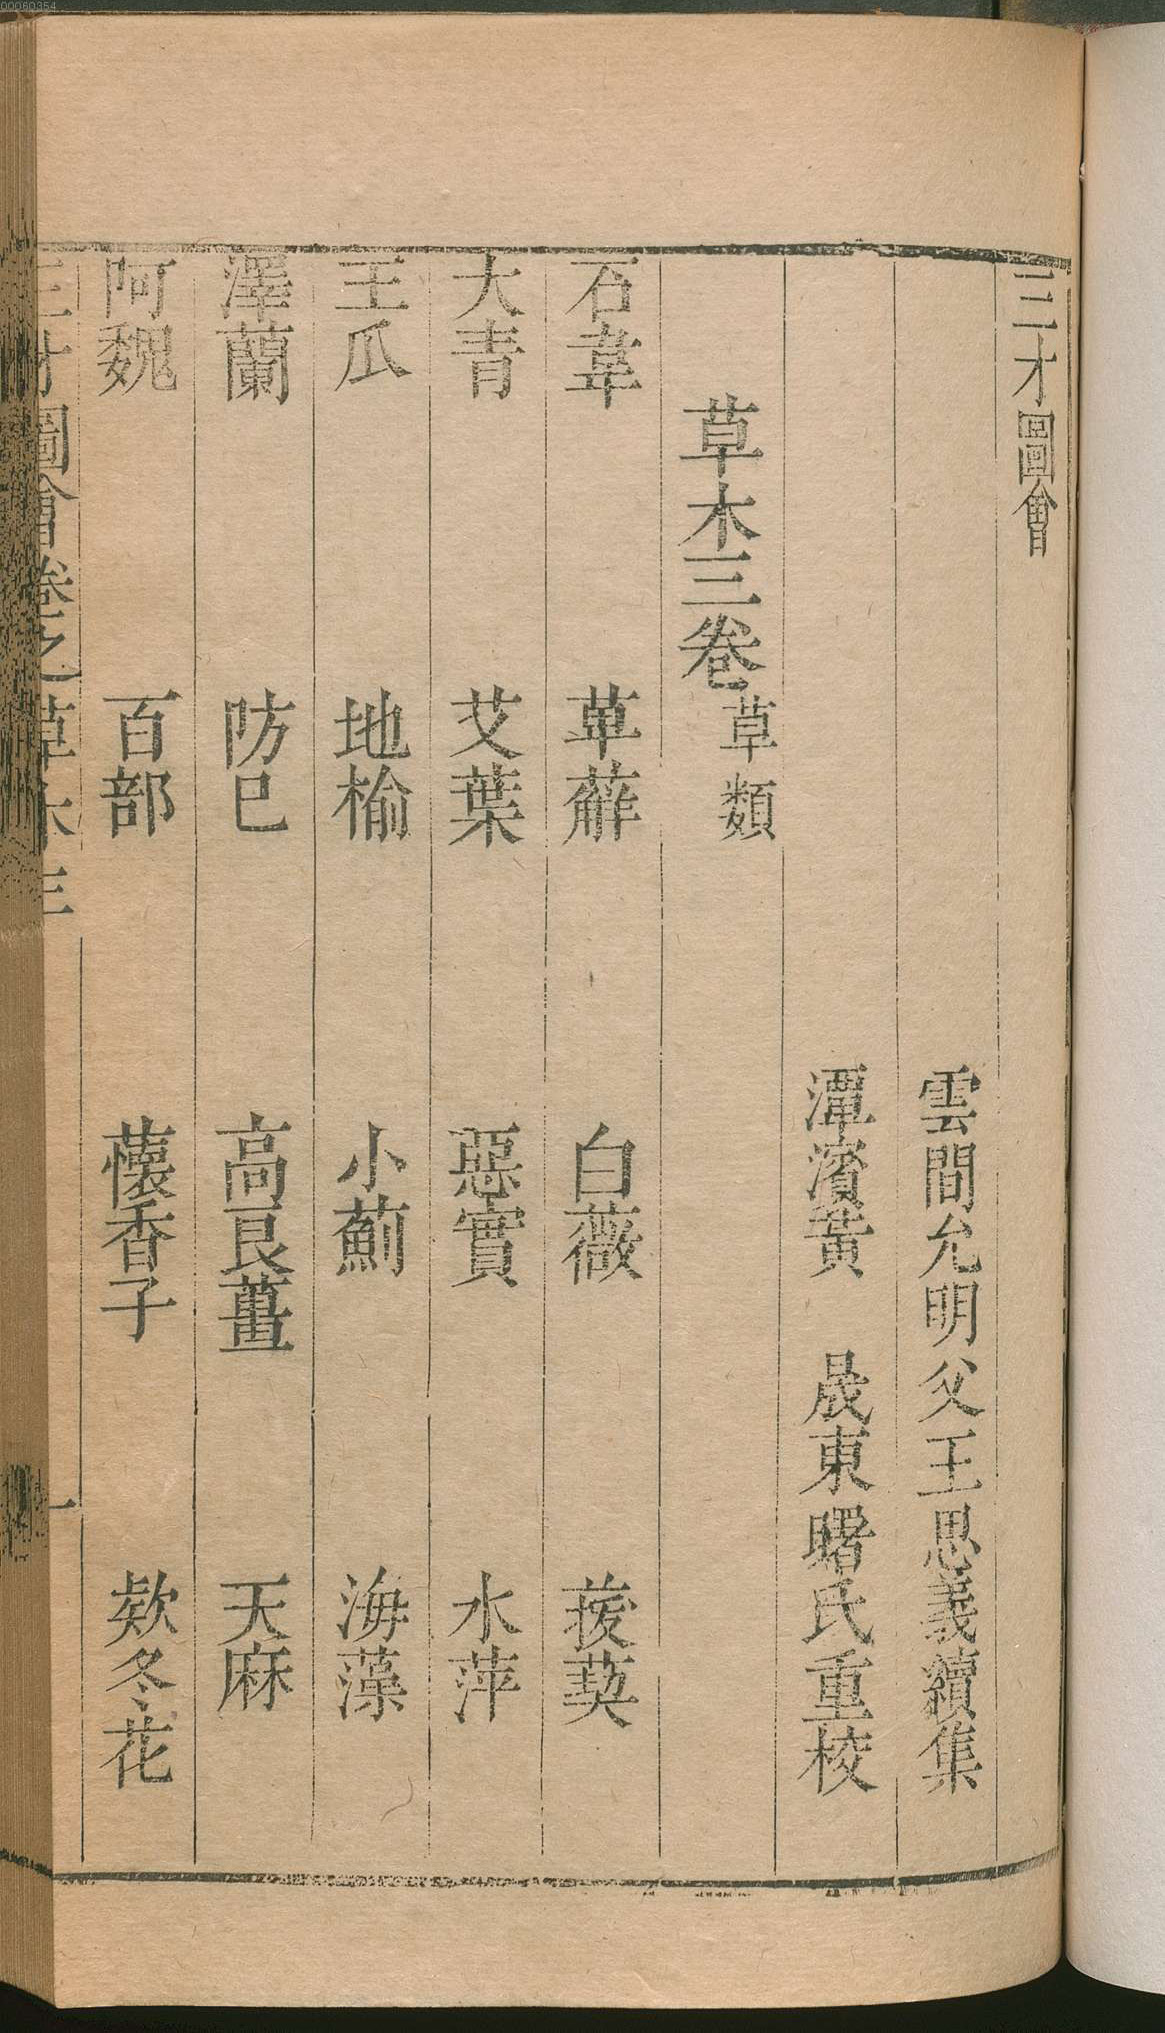 00060354
三才圖會
雲間允明父王思義續集
潭濱黃 晟東曙氏重校
草木三卷 草類
石韋 萆薢 白薇 菝葜
大青 艾葉 惡實 水萍
王瓜 地榆 小薊 海藻
澤蘭 防巳 高良薑 天麻
阿魏 百部 懷香子 欵冬花
三才圖會卷之草木三 一